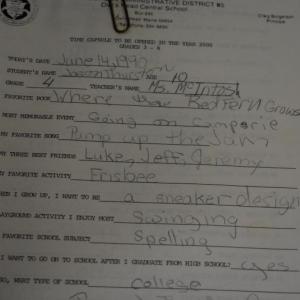 MINISTRATIVE DISTRICT #3
Central School
Craig Burgess
Principal
TIME CAPSULE TO BE OPENED IN THE YEAR 2000
GRADES 3 - 8
TODAY'S DATE June 14, 1990
STUDENT'S NAME Jason Thurston AGE 10
GRADE 4 TEACHER'S NAME Ms. McIntosh
FAVORITE BOOK Where the Red Fern Grows
MOST MEMORABLE EVENT Going on Camporie
MY FAVORITE SONG Pump up the Jam
MY THREE BEST FRIENDS Luke, Jeff, Jeremy
MY FAVORITE ACTIVITY Frisbee
WHEN I GROW UP, I WANT TO BE a sneaker design
PLAYGROUND ACTIVITY I ENJOY MOST Swinging
FAVORITE SCHOOL SUBJECT Spelling
I WANT TO GO ON TO SCHOOL AFTER I GRADUATE FROM HIGH SCHOOL? yes
SO, WHAT TYPE OF SCHOOL college